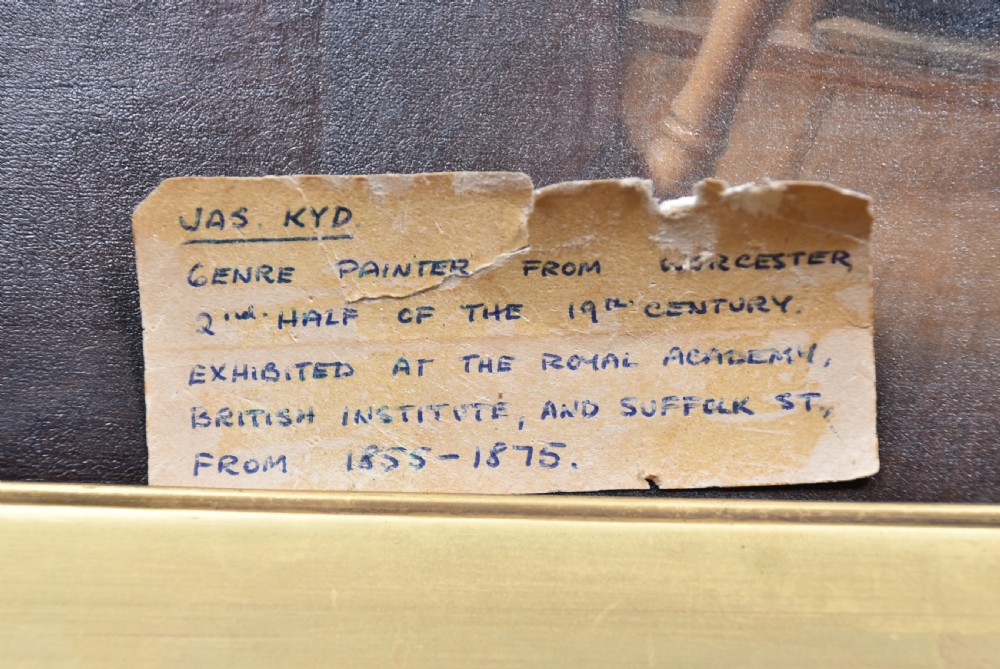 JAS. KYD
GENRE PAINTER FROM WORCESTER,
2nd. HALF OF THE 19TH. CENTURY.
EXHIBITED AT THE ROYAL ACADEMY,
BRITISH INSTITUTE, AND SUFFOLK ST.,
FROM 1855-1875.